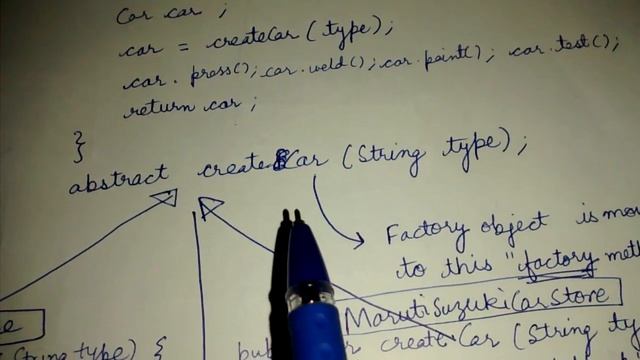 Car car ;
car = createCar (type);
car. press(); car.weld(); car.paint(); car.test();
return car ;
}
abstract createCar (String type);
Factory object is
to this "factory
MarutiSuzukiCarStore
String type) {
createCar (String